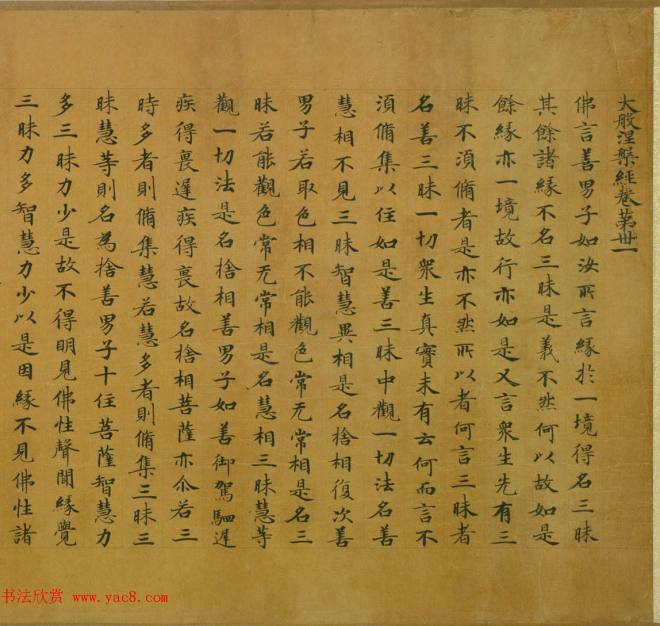 大般涅槃經卷第卅一
佛言善男子如汝所言緣於一境得名三昧
其餘諸緣不名三昧是義不然何以故如是
餘緣亦一境故行亦如是又言衆生先有三
昧不須脩者是亦不然所以者何言三昧者
名善三昧一切衆生真實未有云何而言不
須脩集以住如是善三昧中觀一切法名善
慧相不見三昧智慧異相是名捨相復次善
男子若取色相不能觀色常无常相是名三
昧若能觀色常无常相是名慧相三昧慧等
觀一切法是名捨相善男子如善御駕駟遲
疾得裏遲疾得裏故名捨相菩薩亦尒若三
時多者則脩集慧若慧多者則脩集三昧三
昧慧等則名為捨善男子十住菩薩智慧力
多三昧力少是故不得明見佛性聲聞緣覺
三昧力多智慧力少以是因緣不見佛性諸
书法欣赏 www.yac8.com